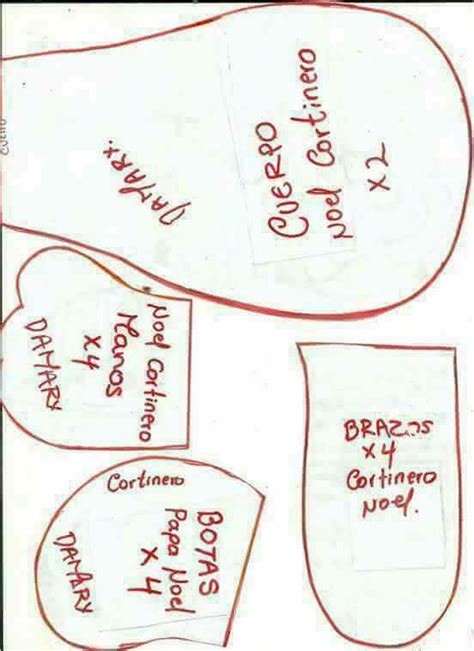 CUERPO
Noel Cortinero
x2
DAMARY.
Noel Cortinero
Manos
x4
DAMARY
BRAZOS
x4
Cortinero
Noel.
Cortinero
BOTAS
Papa Noel
x4
DAMARY